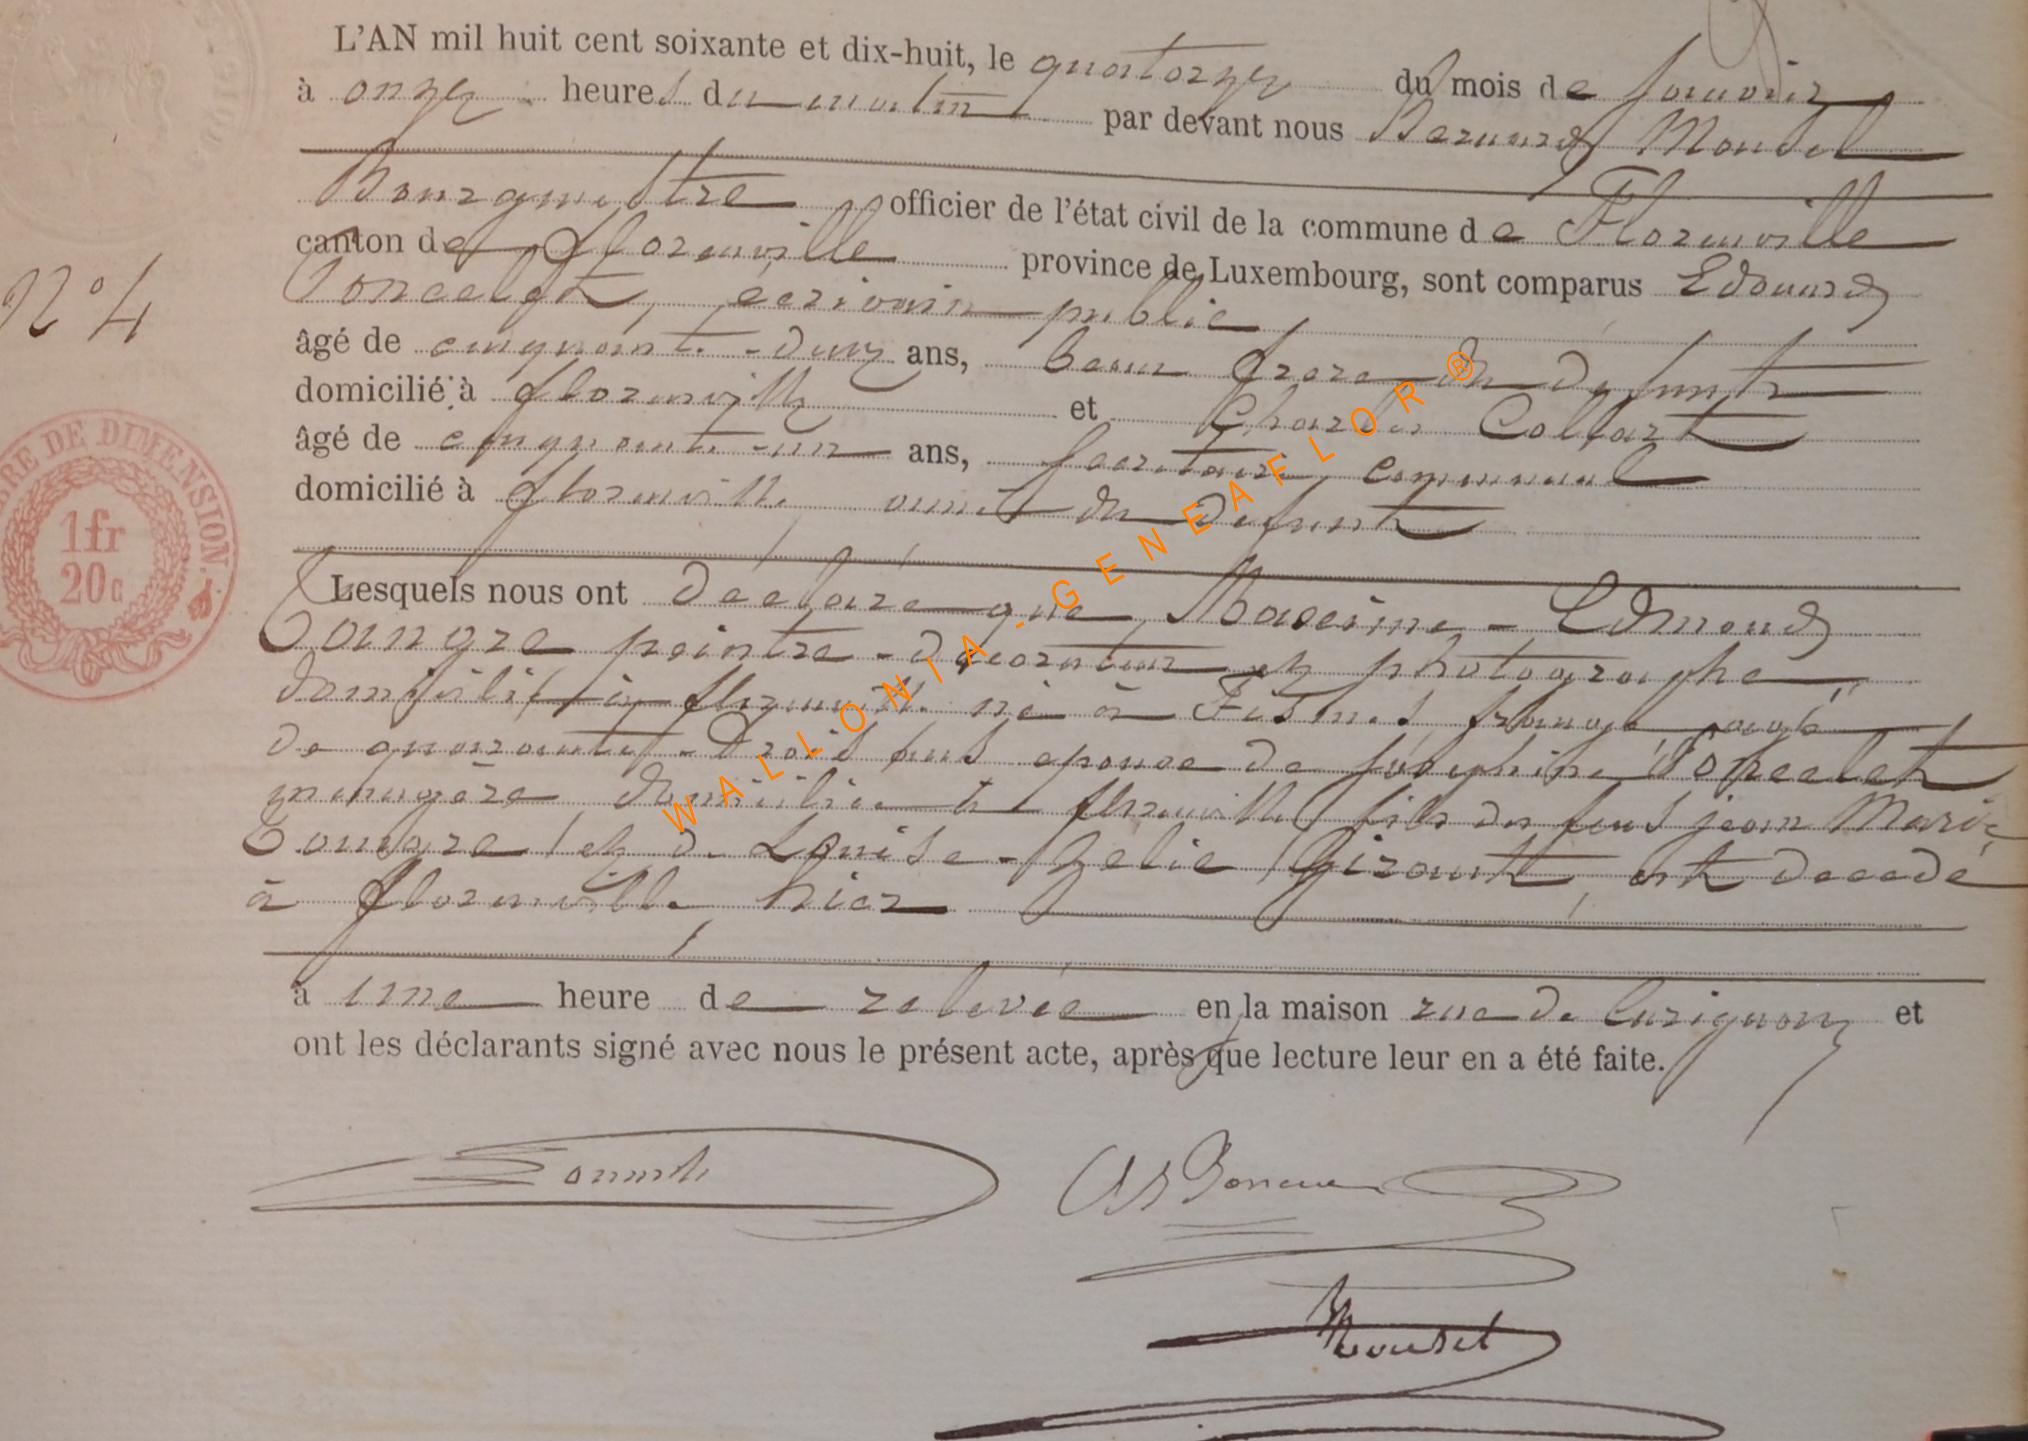 L'AN mil huit cent soixante et dix-huit, le quatorze du mois de Janvier
à onze heures du matin par devant nous Bernard Mousel
Bourgmestre officier de l'état civil de la commune de Florenville
canton de Florenville province de Luxembourg, sont comparus Edouard
Poncelet, écrivain public
âgé de cinquante-deux ans, beau frère du défunt
domicilié à Florenville et Charles Collart
âgé de cinquante-un ans, secrétaire communal
domicilié à Florenville ami du défunt
N° 4
TIMBRE DE DIMENSION.
1fr
20c
Lesquels nous ont déclaré que Maxime-Edmond
Tangre peintre-décorateur et photographe
domicilié à Florenville né à Fismes france agé
de quarante-trois ans epoux de Joséphine Poncelet
ménagère domiciliée à Florenville fils de feus jean Marie
Tangre et de Louise-Zelie Girault est décédé
à Florenville hier
à une heure de relevée en la maison rue de Carignan et
ont les déclarants signé avec nous le présent acte, après que lecture leur en a été faite.
Mousel
WALLONIA-GENEAFLOR ®